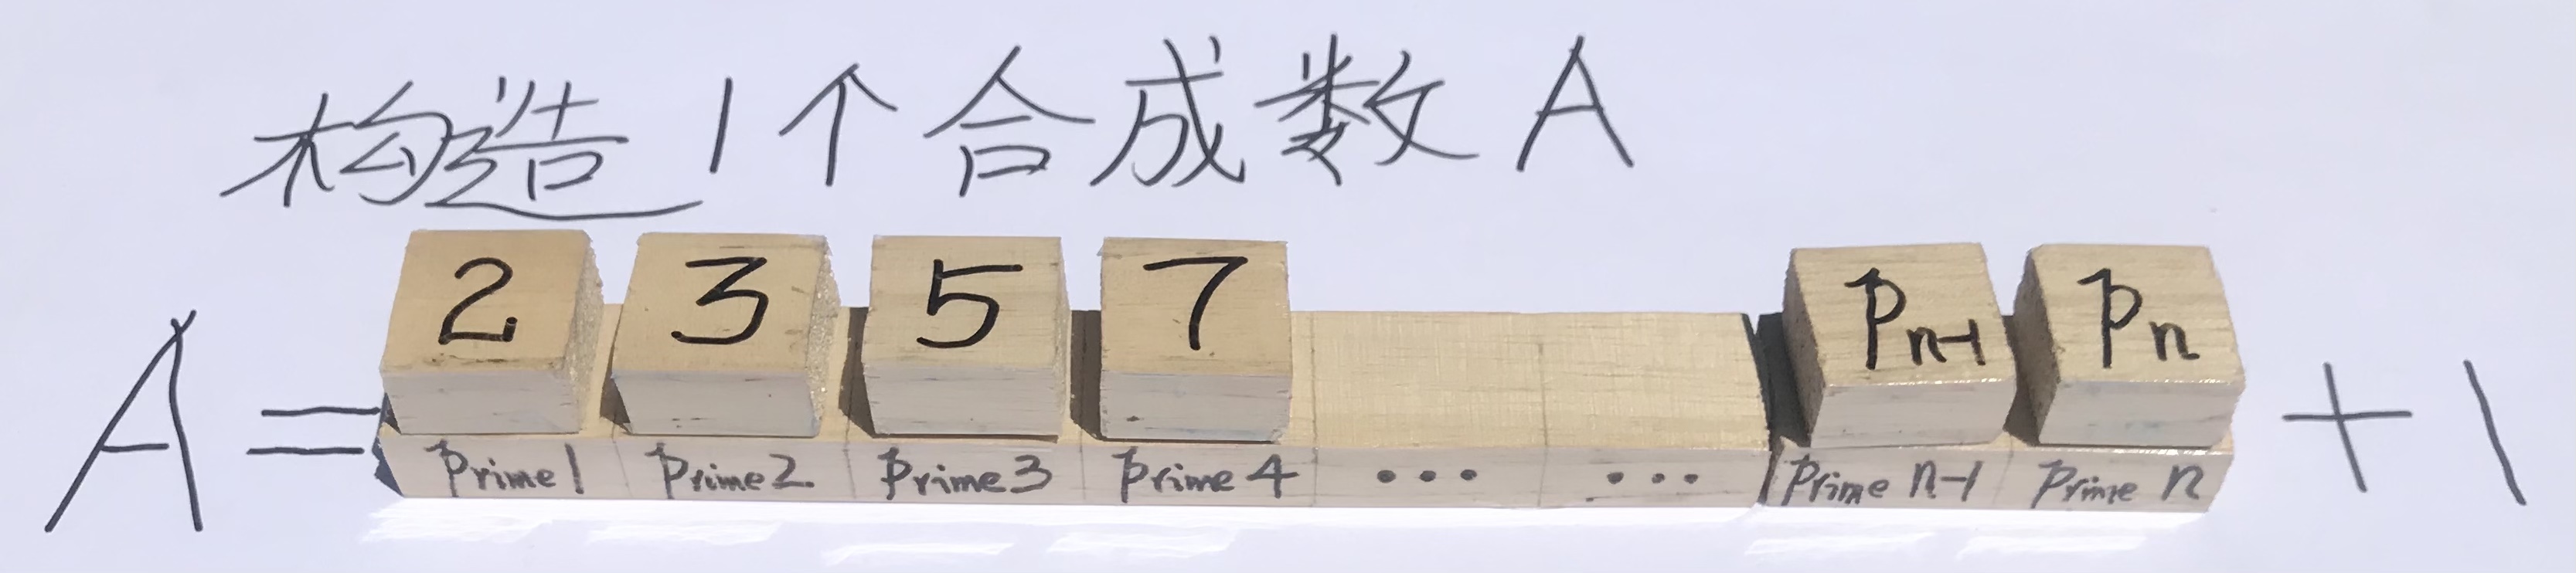 构造1个合成数A
A= 2 3 5 7 Pn-1 Pn +1
Prime1 Prime2 Prime3 Prime4 ... ... Prime n-1 Prime n